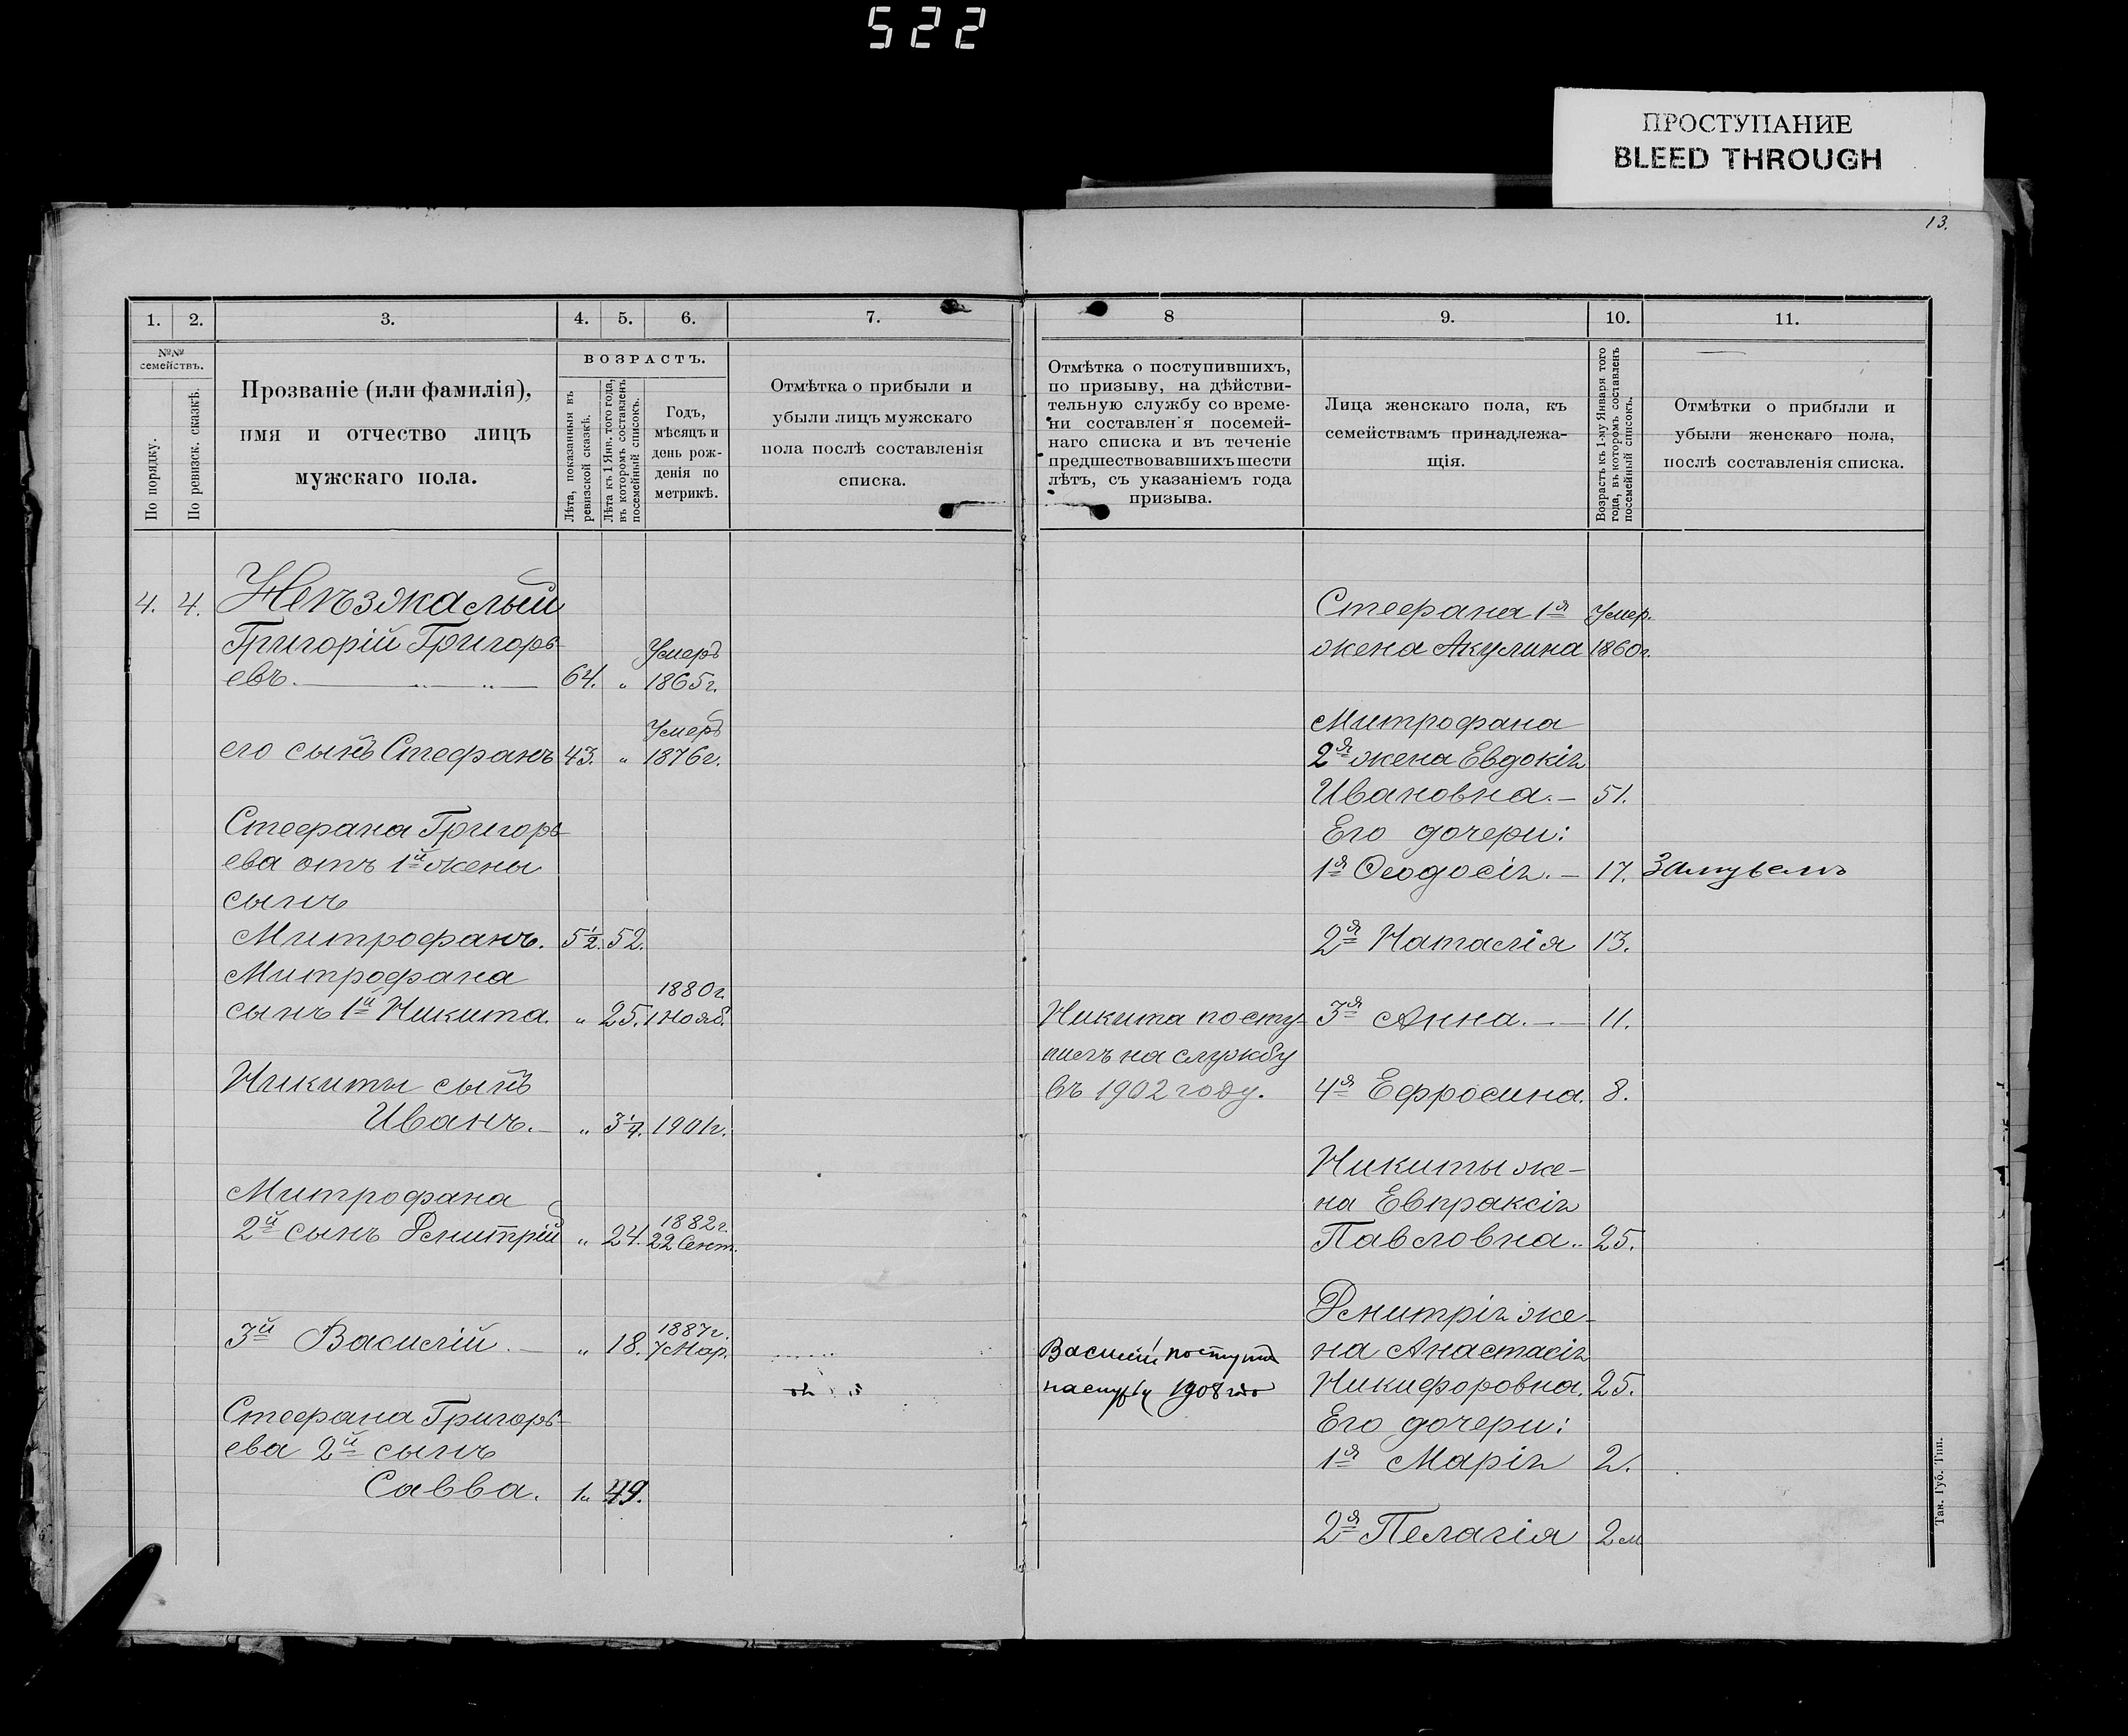 522
ПРОСТУПАНИЕ
BLEED THROUGH
13.
1. 2. 3. 4. 5. 6. 7.
№№ семействъ.
По порядку.
По ревизск. сказкѣ.
Прозваніе (или фамилія),
имя и отчество лицъ
мужскаго пола.
ВОЗРАСТЪ.
Лѣта, показанныя въ
ревизской сказкѣ.
Лѣта къ 1 Янв. того года,
въ которомъ составленъ
посемейный списокъ.
Годъ,
мѣсяцъ и
день рож-
денія по
метрикѣ.
Отмѣтка о прибыли и
убыли лицъ мужскаго
пола послѣ составленія
списка.
4. 4. Непъзжалый
Григорій Григорь- Умеръ
евъ. 64. „ 1865г.
Умеръ
его сынъ Стефанъ 43. „ 1876г.
Стефана Григорь-
ева отъ 1й жены
сынъ
Митрофанъ. 5½. 52.
Митрофана 1880г.
сынъ 1й Никита. „ 25. 1 Нояб.
Никиты сынъ
Иванъ. „ 3¼. 1901г.
Митрофана
2й сынъ Дмитрій „ 24. 1882г. 22 Сент.
3й Василій „ 18. 1887г. 7 Мар.
Стефана Григорь-
ева 2й сынъ
Савва. 1„ 49.
8 9. 10. 11.
Отмѣтка о поступившихъ,
по призыву, на дѣйстви-
тельную службу со време-
ни составленія посемей-
наго списка и въ теченіе
предшествовавшихъ шести
лѣтъ, съ указаніемъ года
призыва.
Лица женскаго пола, къ
семействамъ принадлежа-
щія.
Возрастъ къ 1-му Января того
года, въ которомъ составленъ
посемейный списокъ.
Отмѣтки о прибыли и
убыли женскаго пола,
послѣ составленія списка.
Стефана 1я Умер.
жена Акулина 1860г.
Митрофана
2я жена Евдокія
Ивановна. — 51.
Его дочери:
1я Ѳеодосія. — 17.
2я Наталія 13.
Никита посту- 3я Анна. — 11.
пилъ на службу
въ 1902 году. 4я Ефросина. 8.
Никиты же-
на Евпраксія
Павловна. 25.
Дмитрія же-
Василій поступил на Анастасія
1908 Никифоровна. 25.
Его дочери:
1я Марія 2.
2я Пелагія 2м
Тав. Губ. Тип.